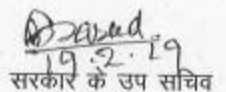 19.2.19
सरकार के उप सचिव